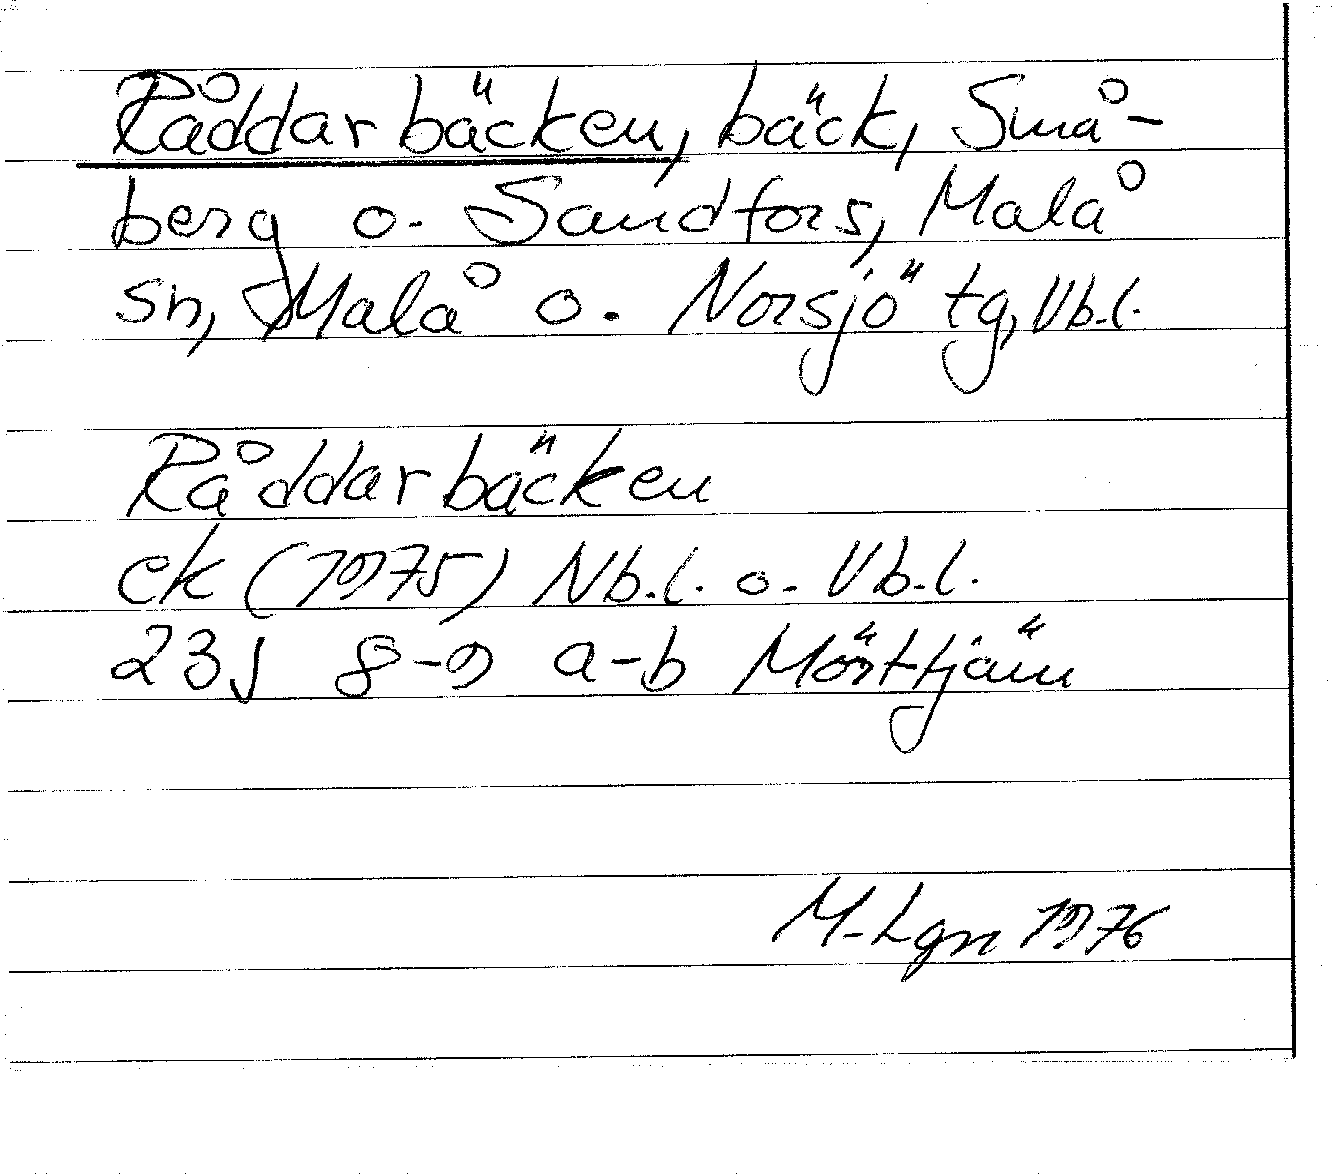 Råddarbäcken, bäck, Små-
berg o. Sandfors, Malå
sn, Malå o. Norsjö tg, Vb.l.
Råddarbäcken
ek (1975) Nb.l. o. Vb.l.
23J 8-9 a-b Mörttjärn
M-Lgn 1976